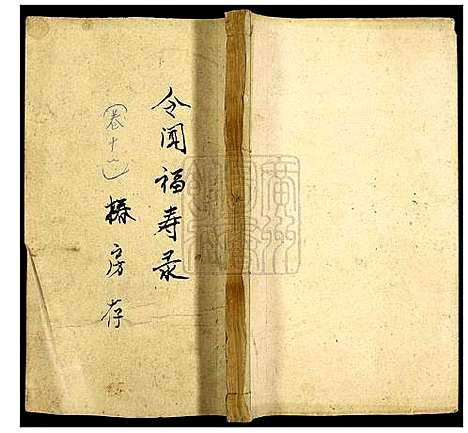 令闻福寿录
(卷十一)
椿房存